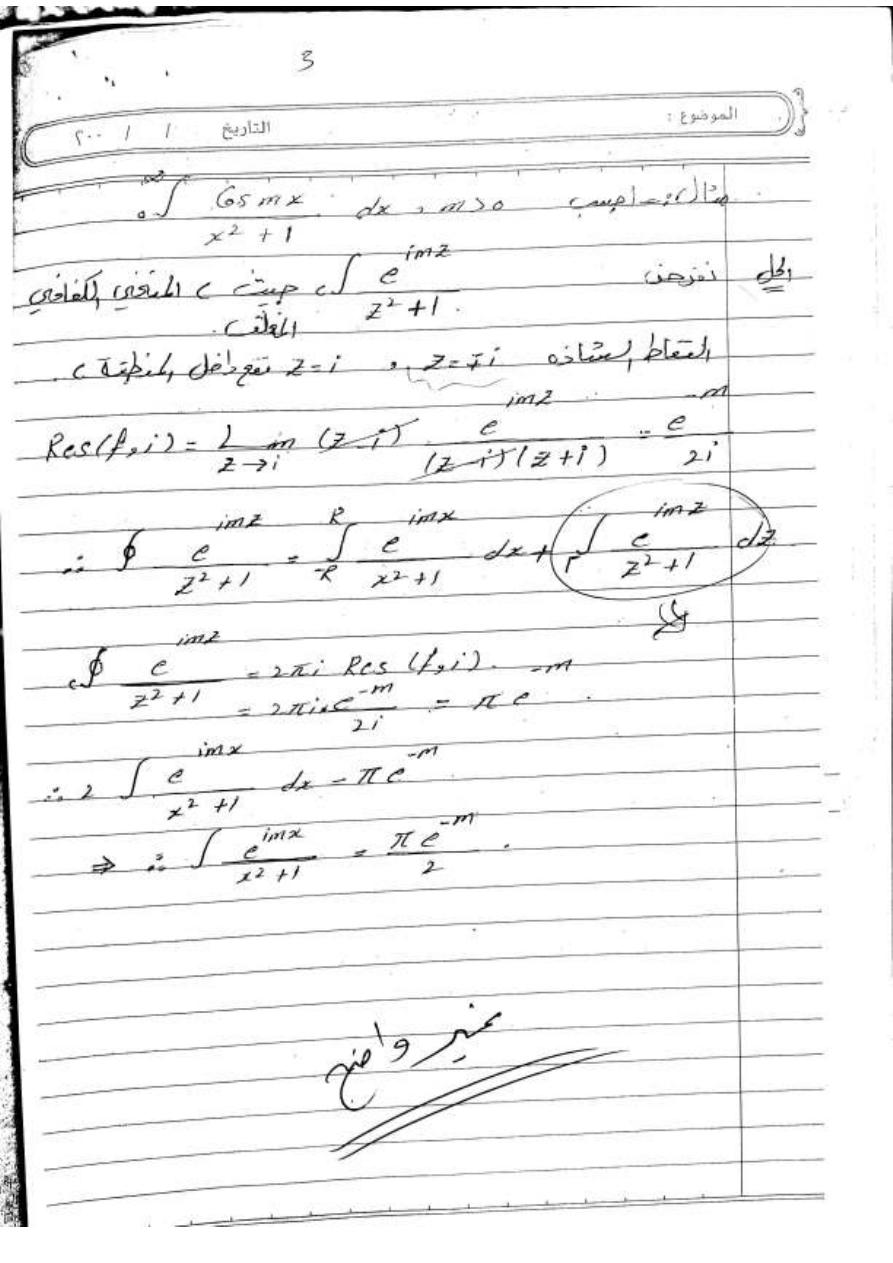 3
الموضوع : التاريخ / / ٢٠٠
مثال :- احسب ₀∫^∞ Cos mx / (x² + 1) dx , m>0
الحل نفرض ∫c e^{imz} / (z² + 1) . حيث c المنحني الكفافي
المغلق .
النقاط الشاذه z=∓i , z=i تقع داخل المنطقة c .
Res(f,i) = Lim z→i (z-i) e^{imz} / ((z-i)(z+i)) = e^{-m} / 2i
∴ ∮ e^{imz} / (z²+1) = ∫_{-R}^{R} e^{imx} / (x²+1) dx + ∫_Γ e^{imz} / (z²+1) dz
∮c e^{imz} / (z²+1) = 2πi Res (f,i) .
= 2πi × e^{-m} / 2i = π e^{-m} .
∴ 2 ∫ e^{imx} / (x²+1) dx = π e^{-m}
⇒ ∴ ∫ e^{imx} / (x²+1) = π e^{-m} / 2 .
غير واضح